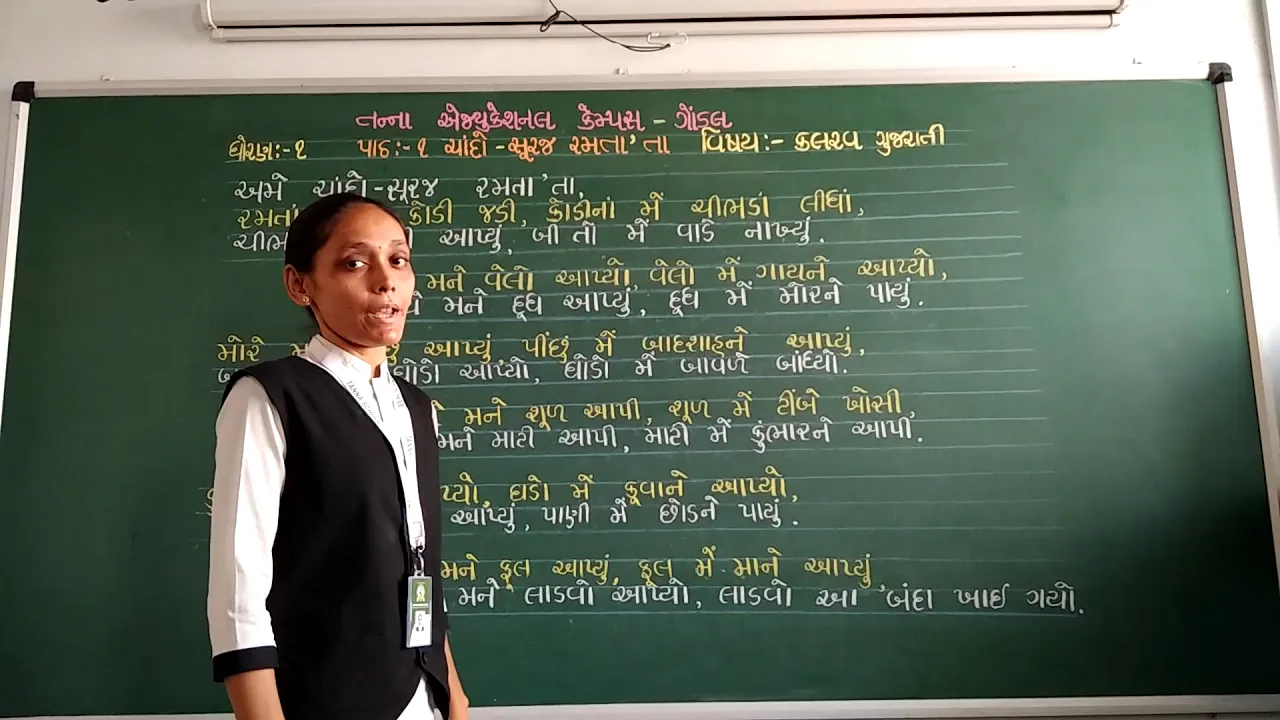 તન્ના એજ્યુકેશનલ કેમ્પસ - ગોંડલ
ધોરણ:- ૧ પાઠ:- ૧ ચાંદો - સૂરજ રમતા'તા વિષય:- કલરવ ગુજરાતી
અમે ચાંદો - સૂરજ રમતા'તા,
રમતાં કોડી જડી, કોડીનાં મેં ચીભડાં લીધાં,
આપ્યું, બી તો મેં વાડે નાખ્યું.
મને વેલો આપ્યો, વેલો મેં ગાયને આપ્યો,
મને દૂધ આપ્યું, દૂધ મેં મોરને પાયું.
મોરે આપ્યું, પીંછું મેં બાદશાહને આપ્યું,
ઘોડો આપ્યો, ઘોડો મેં બાવળે બાંધ્યો.
મને શૂળ આપી, શૂળ મેં ટીંબે ખોસી,
મને માટી આપી, માટી મેં કુંભારને આપી.
ઘડો મેં કૂવાને આપ્યો,
આપ્યું, પાણી મેં છોડને પાયું.
મને ફૂલ આપ્યું, ફૂલ મેં માને આપ્યું
મને લાડવો આપ્યો, લાડવો આ બંદા ખાઈ ગયો.